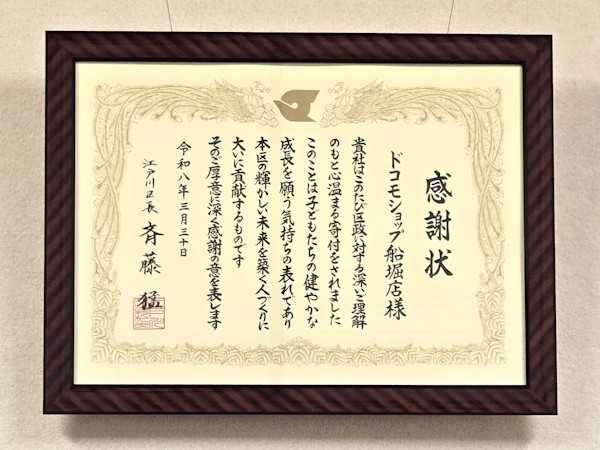 感謝状
ドコモショップ船堀店様
貴社はこのたび区政に対する深いご理解
のもと心温まる寄付をされました
このことは子どもたちの健やかな
成長を願う気持ちの表れであり
本区の輝かしい未来を築く人づくりに
大いに貢献するものです
そのご厚意に深く感謝の意を表します
令和八年三月三十日
江戸川区長 斉藤 猛